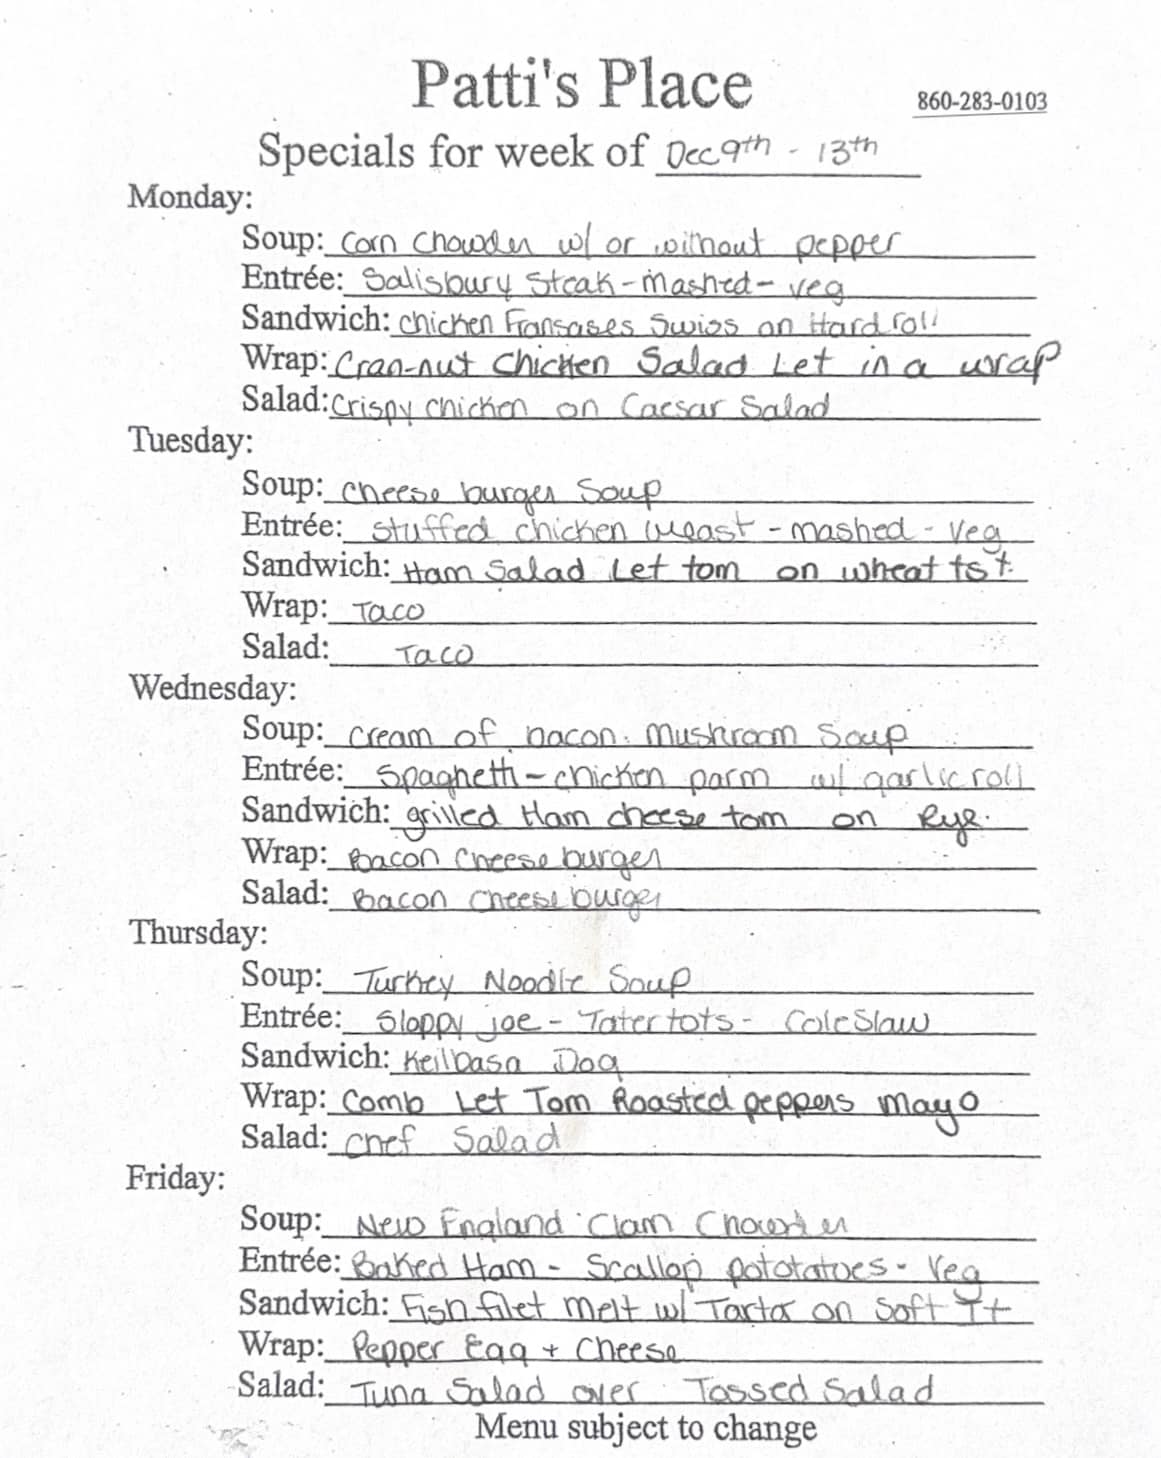 Patti's Place
860-283-0103
Specials for week of Dec 9th - 13th
Monday:
Soup: Corn Chowder w/ or without pepper
Entrée: Salisbury Steak - mashed - veg
Sandwich: Chicken Fransases Swiss on Hard roll
Wrap: Cran-nut Chicken Salad Let in a wrap
Salad: Crispy chicken on Caesar Salad
Tuesday:
Soup: cheese burger Soup
Entrée: stuffed chicken breast - mashed - veg
Sandwich: Ham Salad Let tom on wheat tst.
Wrap: Taco
Salad: Taco
Wednesday:
Soup: cream of bacon. Mushroom Soup
Entrée: Spaghetti - chicken parm w/ garlic roll
Sandwich: grilled Ham cheese tom on Rye.
Wrap: Bacon Cheese burger
Salad: Bacon Cheese burger
Thursday:
Soup: Turkey Noodle Soup
Entrée: Sloppy joe - Tater tots - ColeSlaw
Sandwich: Keilbasa Dog
Wrap: Comb Let Tom Roasted peppers mayo
Salad: Chef Salad
Friday:
Soup: New England Clam Chowder
Entrée: Baked Ham - Scallop pototatoes - Veg
Sandwich: Fish filet Melt w/ Tartar on Soft It
Wrap: Pepper Egg + Cheese
Salad: Tuna Salad over Tossed Salad
Menu subject to change